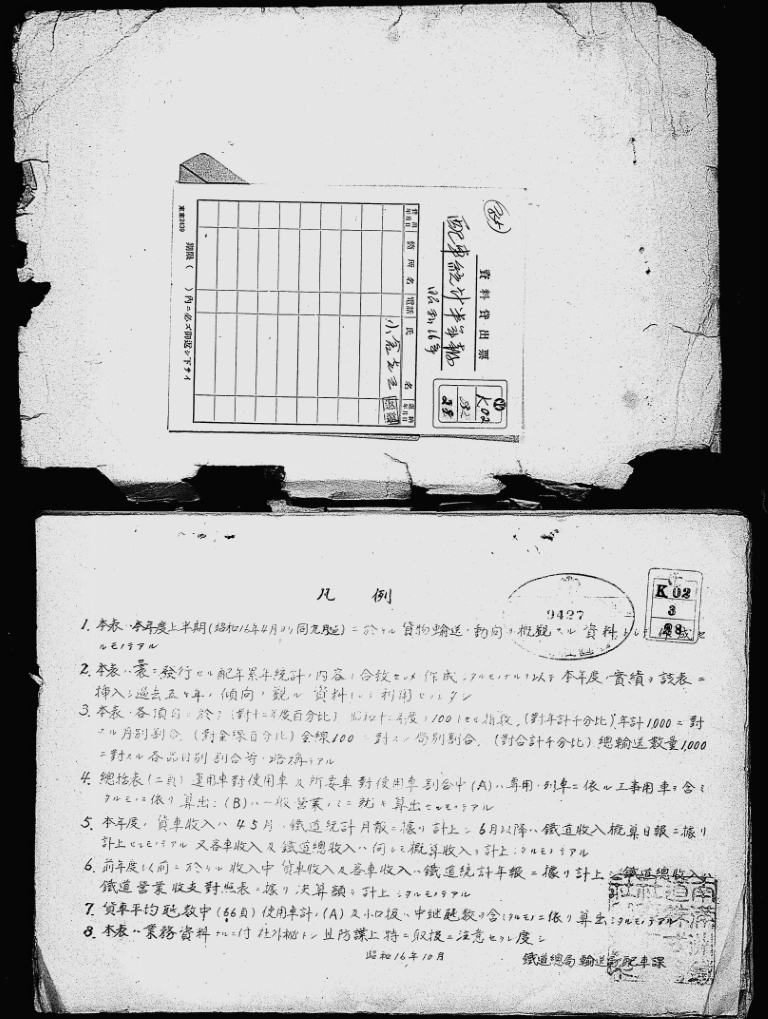 資料貸出票
配車統計半年報
昭和16年
K02
28
貸出年月日 箇所名 電話 氏名 返納年月日
期限( )内ニ必ズ御返シ下サイ
東東2439
凡例
9427
K02
3
28
1. 本表ハ本年度上半期(昭和16年4月ヨリ同九月迄)ニ於ケル貨物輸送ノ動向ヲ概観スル資料トシテ作成セ
ルモノデアル
2. 本表ハ曩ニ発行セル配車累年統計ノ内容ニ合致セシメ作成シタルモノナルヲ以テ本年度ノ実績ヲ該表ニ
挿入シ過去五ヶ年ノ傾向ヲ観ル資料トシテ利用セラレタシ
3. 本表各項目ニ於テ(対十二年度百分比) 昭和十二年度ヲ100トセル指数, (対年計千分比)年計1,000ニ対
スル月別割合, (対全線百分比)全線100ニ対スル局別割合, (対合計千分比)総輸送数量1,000
ニ対スル各品目別割合等ノ略称デアル
4. 総括表(二頁)運用車対使用車及所要車対使用車割合中(A)ハ専用列車ニ依ル工事用車ヲ含ミ
タルモノニ依リ算出シ(B)ハ一般営業ノミニ就キ算出セルモノデアル
5. 本年度ノ貨車収入ハ4 5月ハ鉄道統計月報ニ拠リ計上シ6月以降ハ鉄道収入概算日報ニ拠リ
計上セルモノデアル又客車収入及鉄道総収入ハ何レモ概算収入ヲ計上シタルモノデアル
6. 前年度以前ニ於ケル収入中貨車収入及客車収入ハ鉄道統計年報ニ拠リ計上シ鉄道総収入ハ
鉄道営業収支対照表ニ拠リ決算額ヲ計上シタルモノデアル
7. 貨車平均延数中(66頁)使用車計ノ(A)及小口扱ハ中継延数ヲ含ミタルモノニ依リ算出シタルモノデアル
8. 本表ハ業務資料ナルニ付社外秘トシ且防諜上特ニ取扱ニ注意セラレ度シ
昭和16年10月
鐵道總局輸送局配車課